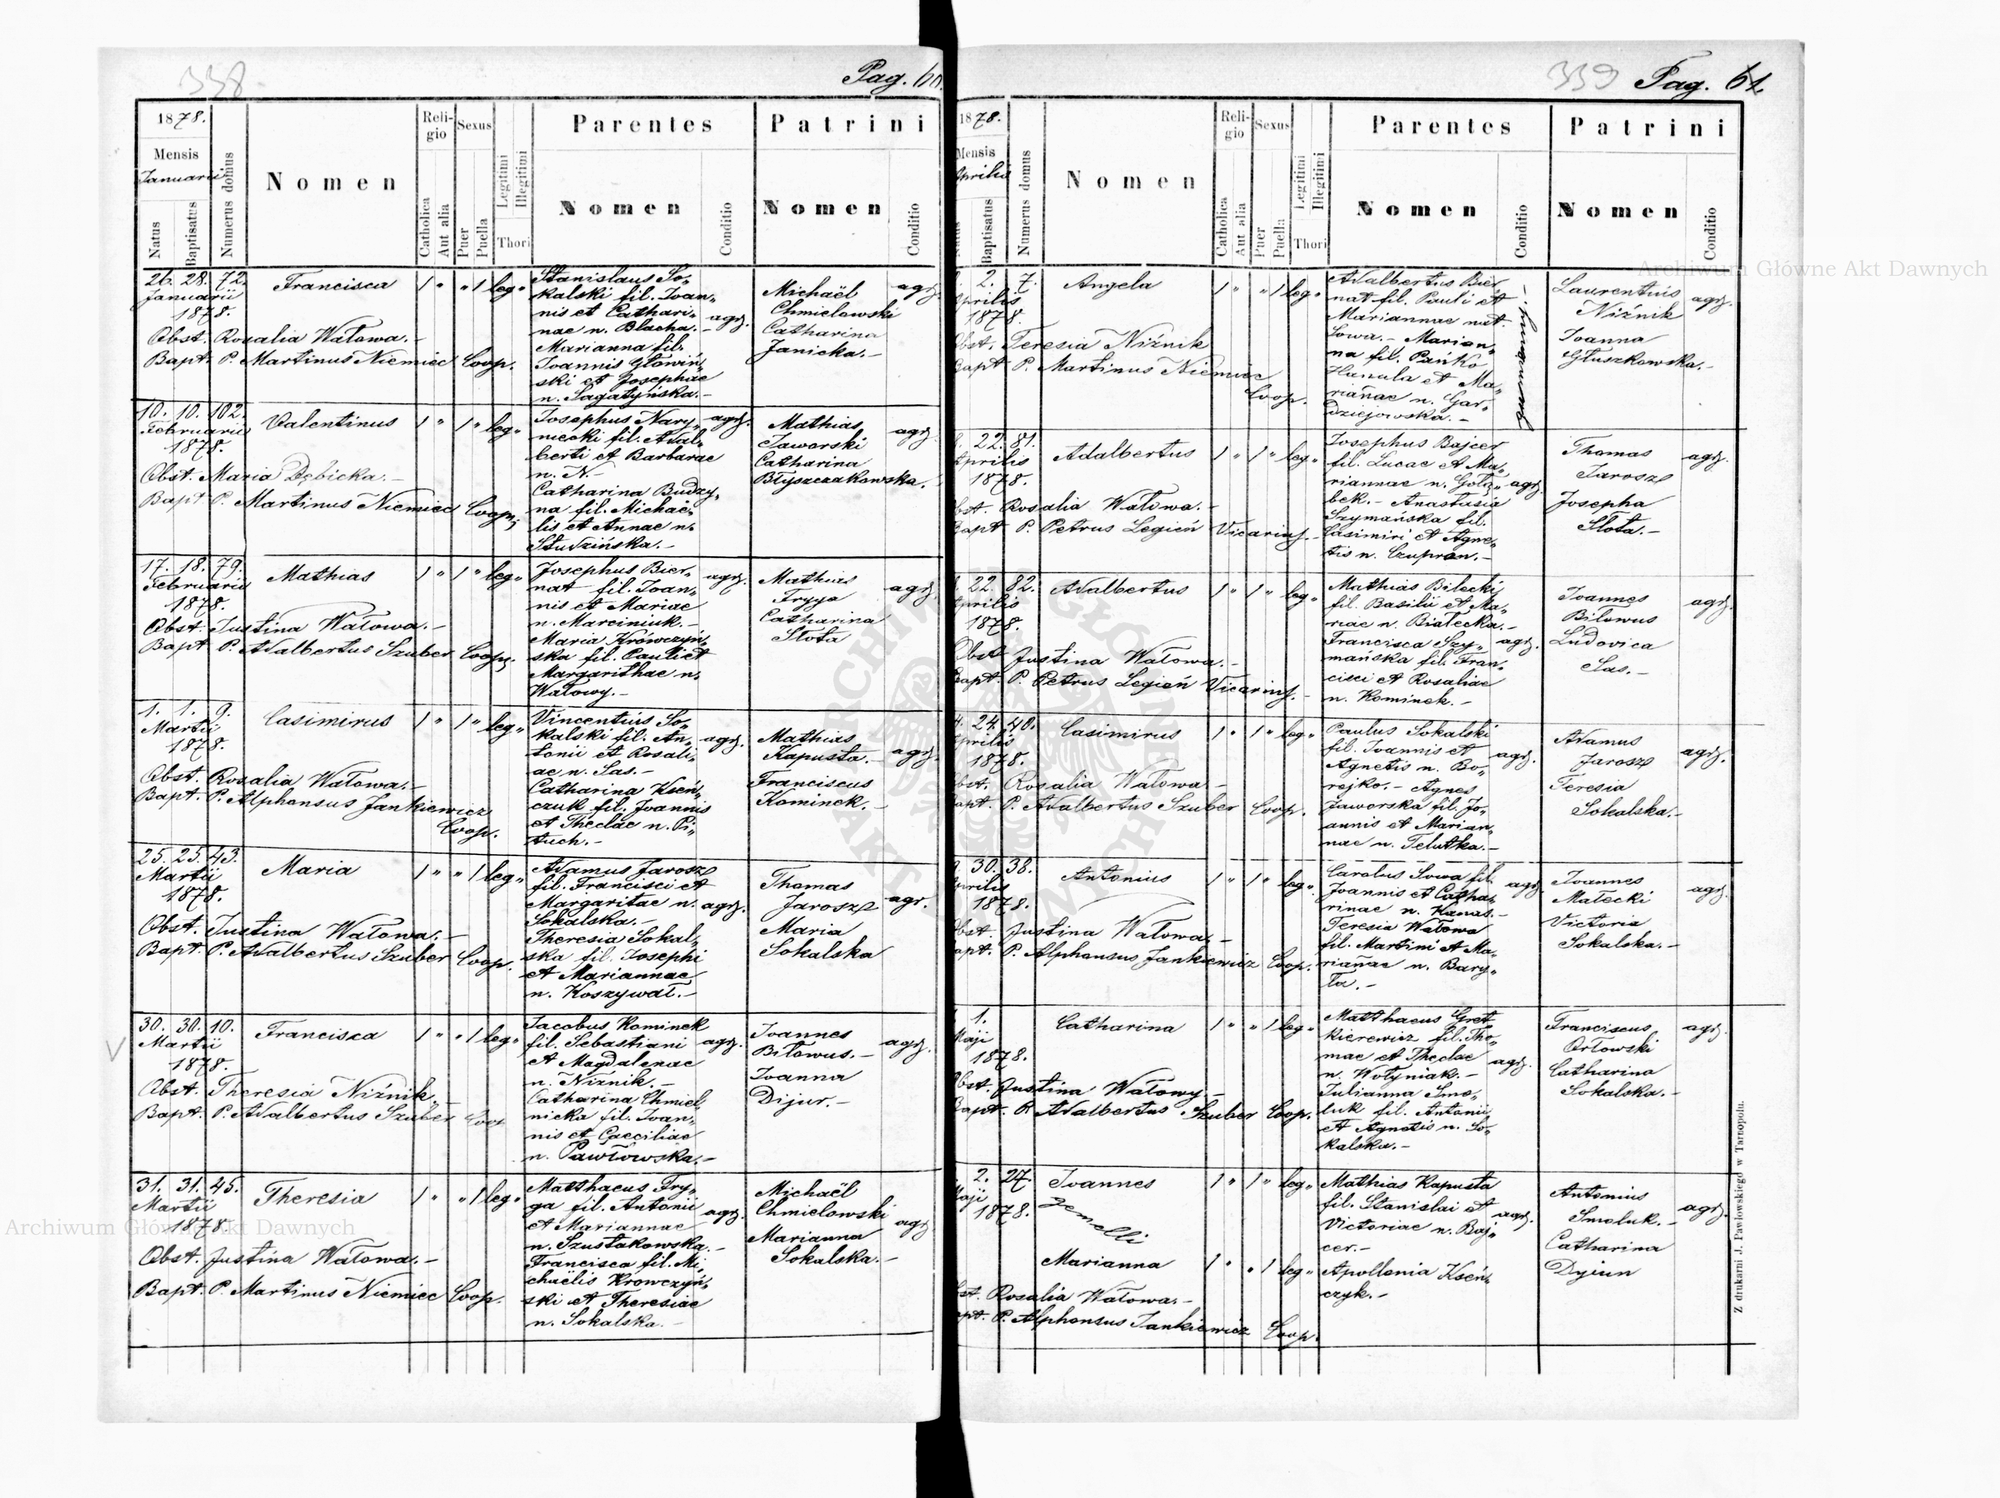 338.
Pag. 60.
1878.
Mensis
Januarii
Natus
Baptisatus
Numerus domus
Nomen
Religio
Catholica
Aut alia
Sexus
Puer
Puella
Legitimi
Illegitimi
Thori
Parentes
Nomen
Conditio
Patrini
Nomen
Conditio
26. 28. 72.
Januarii
1878.
Francisca
1 " " 1 leg "
Obst. Rosalia Wałowa.-
Bapt. P. Martinus Niemiec Coop.
Stanislaus So-
kalski fil. Joan-
nis et Cathari-
nae n. Blacha.-
Marianna fil.
Joannis Głowiń-
ski et Josephae
n. Sagatyńska.-
agr.
Michaël
Chmielowski
Catharina
Janicka.-
agr.
10. 10. 102.
Februarii
1878.
Valentinus
1 " 1 " leg "
Obst. Maria Dębicka.-
Bapt P. Martinus Niemiec Coop.
Josephus Nary-
niecki fil. Adal-
berti et Barbarae
n. N.-
Catharina Budzy-
na fil. Michaë-
lis et Annae n.
Studzińska.-
agr.
Mathias
Jaworski
Catharina
Błyszczakowska.-
agr.
17. 18. 79.
Februarii
1878.
Mathias
1 " 1 " leg "
Obst. Justina Wałowa.-
Bapt P. Adalbertus Szuber Coop.
Josephus Bier-
nat fil. Joan-
nis et Mariae
n. Marciniuk.-
Maria Krówczyń-
ska fil. Pauli et
Margarithae n.
Wałowy.-
agr.
Mathias
Fryga
Catharina
Słota
agr.
1. 1. 9.
Martii
1878.
Casimirus
1 " 1 " leg "
Obst. Rosalia Wałowa.-
Bapt. P. Alphonsus Jankiewicz
Coop.
Vincentius So-
kalski fil. An-
tonii et Rosali-
ae n. Sas.-
Catharina Kseń-
czuk fil. Joannis
et Theclae n. Pi-
tuch.-
agr.
Mathias
Kapusta.
Franciscus
Kominek.-
agr.
25. 25. 43.
Martii
1878.
Maria
1 " " 1 leg "
Obst. Justina Wałowa.-
Bapt. P. Adalbertus Szuber Coop.
Adamus Jarosz
fil. Francisci et
Margaritae n.
Sokalska.-
Theresia Sokal-
ska fil. Josephi
et Mariannae
n. Koszywał.-
agr.
Thomas
Jarosz
Maria
Sokalska
agr.
30. 30. 10.
Martii
1878.
Francisca
1 " " 1 leg "
Obst. Theresia Niżnik.-
Bapt. P. Adalbertus Szuber Coop
Jacobus Kominek
fil. Sebastiani
et Magdalenae
n. Niżnik.-
Catharina Chmiel
nicka fil. Joan-
nis et Caeciliae
n. Pawłowska.-
agr.
Joannes
Biłowus.-
Joanna
Dijur.-
agr.
31. 31. 45.
Martii
1878.
Theresia
1 " " 1 leg "
Obst. Justina Wałowa.-
Bapt. P. Martinus Niemiec Coop.
Matthaeus Fry-
ga fil. Antonii
et Mariannae
n. Szustakowska.-
Francisca fil. Mi-
chaëlis Krowczyń-
ski et Theresiae
n. Sokalska.-
agr.
Michaël
Chmielowski
Marianna
Sokalska.-
agr
339
Pag. 61.
1878.
Mensis
Aprilis
Natus
Baptisatus
Numerus domus
Nomen
Religio
Catholica
Aut alia
Sexus
Puer
Puella
Legitimi
Illegitimi
Thori
Parentes
Nomen
Conditio
Patrini
Nomen
Conditio
2. 7.
Aprilis
1878.
Angela
1 " " 1 leg "
Obst. Teresia Niżnik
Bapt P. Martinus Niemiec
Coop.
Adalbertus Bier-
nat fil. Pauli et
Mariannae nat.
Sowa.- Marian-
na fil. Pańko
Hanula et Ma-
riañae n. Gar-
dziejowska.-
Laurentius
Niżnik
Joanna
Głuszkowska.-
agr.
22. 81.
Aprilis
1878.
Adalbertus
1 " 1 " leg "
Obst. Rosalia Wałowa.-
Bapt P. Petrus Legień Vicarius.-
Josephus Bajcer
fil. Lucae et Ma-
riannae n. Gołę-
bek.- Anastasia
Szymańska fil.
Casimiri et Agne-
tis n. Czupron.-
agr.
Thomas
Jarosz
Josepha
Słota.-
agr.
22. 82.
Aprilis
1878.
Adalbertus
1 " 1 " leg "
Obst Justina Wałowa.-
Bapt. P. Petrus Legień Vicarius.-
Mathias Bilecki
fil. Basilii et Ma-
riae n. Białecka.-
Francisca Szy-
mańska fil. Fran-
cisci et Rosaliae
n. Kominek.-
agr.
Joannes
Biłowus
Ludovica
Sas.-
agr.
24. 40.
Aprilis
1878.
Casimirus
1 " 1 " leg "
Obst. Rosalia Wałowa.-
Bapt. P. Adalbertus Szuber Coop.
Paulus Sokalski
fil. Joannis et
Agnetis n. Bo-
rejko.- Agnes
Jaworska fil. Jo-
annis et Marian-
nae n. Telutka.-
agr.
Adamus
Jarosz
Teresia
Sokalska.-
agr.
30. 38.
Aprilis
1878.
Antonius
1 " 1 " leg "
Obst. Justina Wałowa.-
Bapt. P. Alphonsus Jankiewicz Coop.
Carolus Sowa fil.
Joannis et Catha-
rinae n. Kanas.-
Teresia Wałowa
fil. Martini et Ma-
riañae n. Bary-
ła.-
agr.
Joannes
Małecki
Victoria
Sokalska.-
agr.
1.
Maji
1878.
Catharina
1 " " 1 leg "
Obst. Justina Wałowy.-
Bapt. P. Adalbertus Szuber Coop.
Matthaeus Gret
kierewicz fil. Tho-
mae et Theclae
n. Wołyniak.-
Julianna Smo-
luk fil. Antonii
et Agnetis n. So-
kalska.-
agr.
Franciscus
Orłowski
Catharina
Sokalska.-
agr.
2. 27.
Maji
1878.
Joannes
1 " 1 " leg "
Gemelli
Marianna
1 " " 1 leg "
Obst. Rosalia Wałowa.-
Bapt. P. Alphonsus Jankiewicz Coop.
Mathias Kapusta
fil. Stanislai et
Victoriae n. Baj-
cer.-
Apollonia Kseń-
czyk.-
agr.
Antonius
Smoluk.-
Catharina
Dyiun
agr.
Z drukarni J. Pawłowskiego w Tarnopolu.
Archiwum Główne Akt Dawnych
Archiwum Główne Akt Dawnych
ARCHIWUM GŁÓWNE AKT DAWNYCH